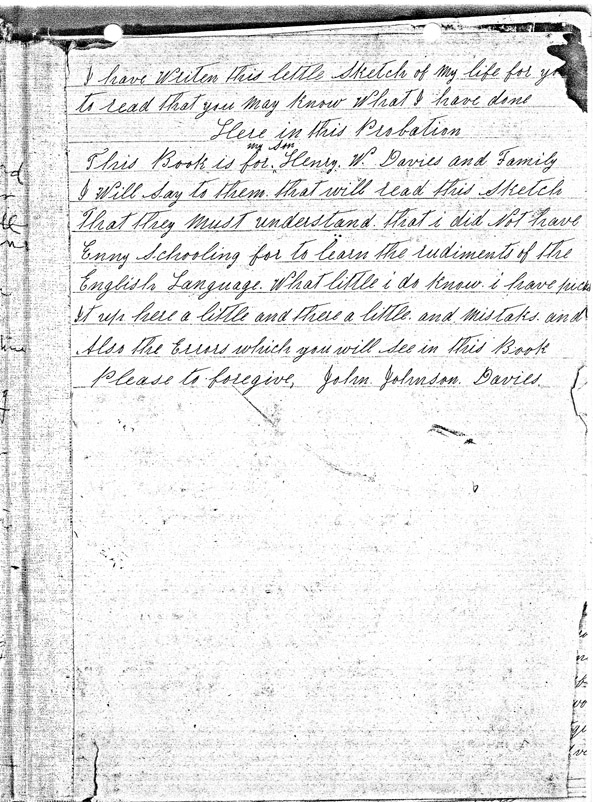 I have Writen this little Sketch of my life for yo
to read that you may Know What I have done
Here in this Probation
my Son
This Book is for, Henry. W. Davies and Family
I Will Say to them. that will read this Sketch
That they Must understand. that i did Not have
Enny Schooling for to learn the rudiments of the
English Language. What little i do know. i have pick
It up here a little and there a little. and mistaks. and
Also the Errors which you will See in this Book
Please to foregive, John. Johnson. Davies.